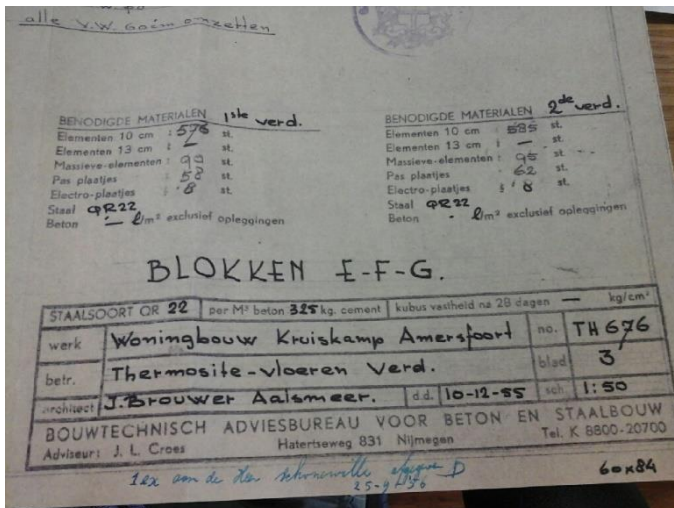 alle V.W. Goën omzetten
BENODIGDE MATERIALEN 1ste verd.
Elementen 10 cm : 576 st.
Elementen 13 cm : — st.
Massieve-elementen : 99 st.
Pas plaatjes : 58 st.
Electro-plaatjes : 8 st.
Staal QR22
Beton — l/m² exclusief opleggingen
BENODIGDE MATERIALEN 2de verd.
Elementen 10 cm : 585 st.
Elementen 13 cm : — st.
Massieve-elementen : 95 st.
Pas plaatjes : 62 st.
Electro-plaatjes : 8 st.
Staal QR22
Beton - l/m² exclusief opleggingen
BLOKKEN E-F-G.
STAALSOORT QR 22 per M³ beton 325 kg. cement kubus vastheid na 28 dagen — kg/cm²
werk Woningbouw Kruiskamp Amersfoort no. TH 676
betr. Thermosite-vloeren Verd. blad 3
architect J. Brouwer Aalsmeer. d.d. 10-12-55 sch. 1:50
BOUWTECHNISCH ADVIESBUREAU VOOR BETON EN STAALBOUW
Adviseur: J. L. Croes Hatertseweg 831 Nijmegen Tel. K 8800-20700
1 ex aan de Heer Schonewille D
25-9-56
60x84